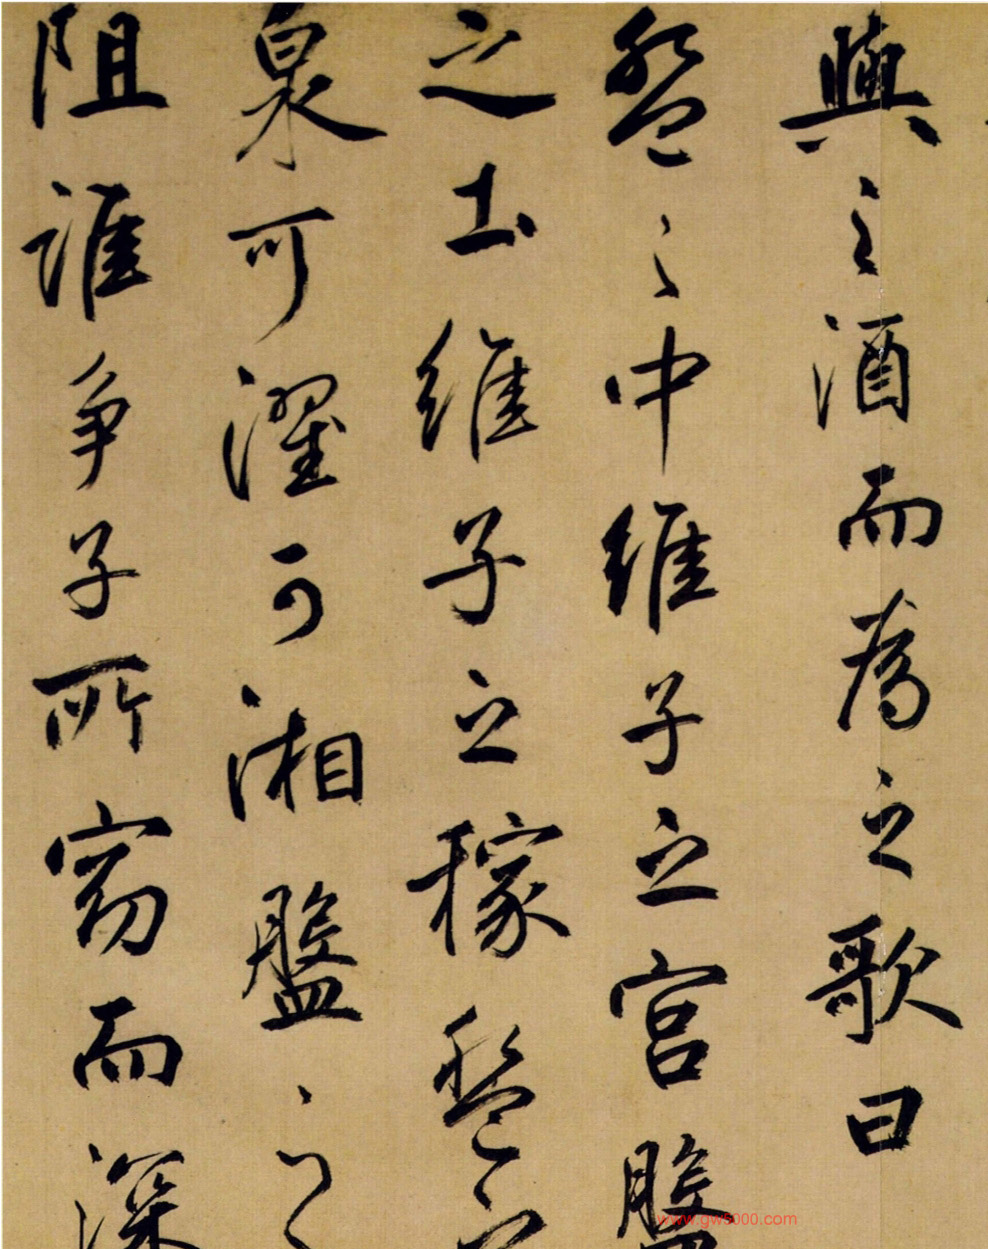 與之酒而為之歌曰
盤之中維子之宮盤
之土維子之稼盤之
泉可濯可湘盤之
阻誰争子所窈而深
www.gw5000.com